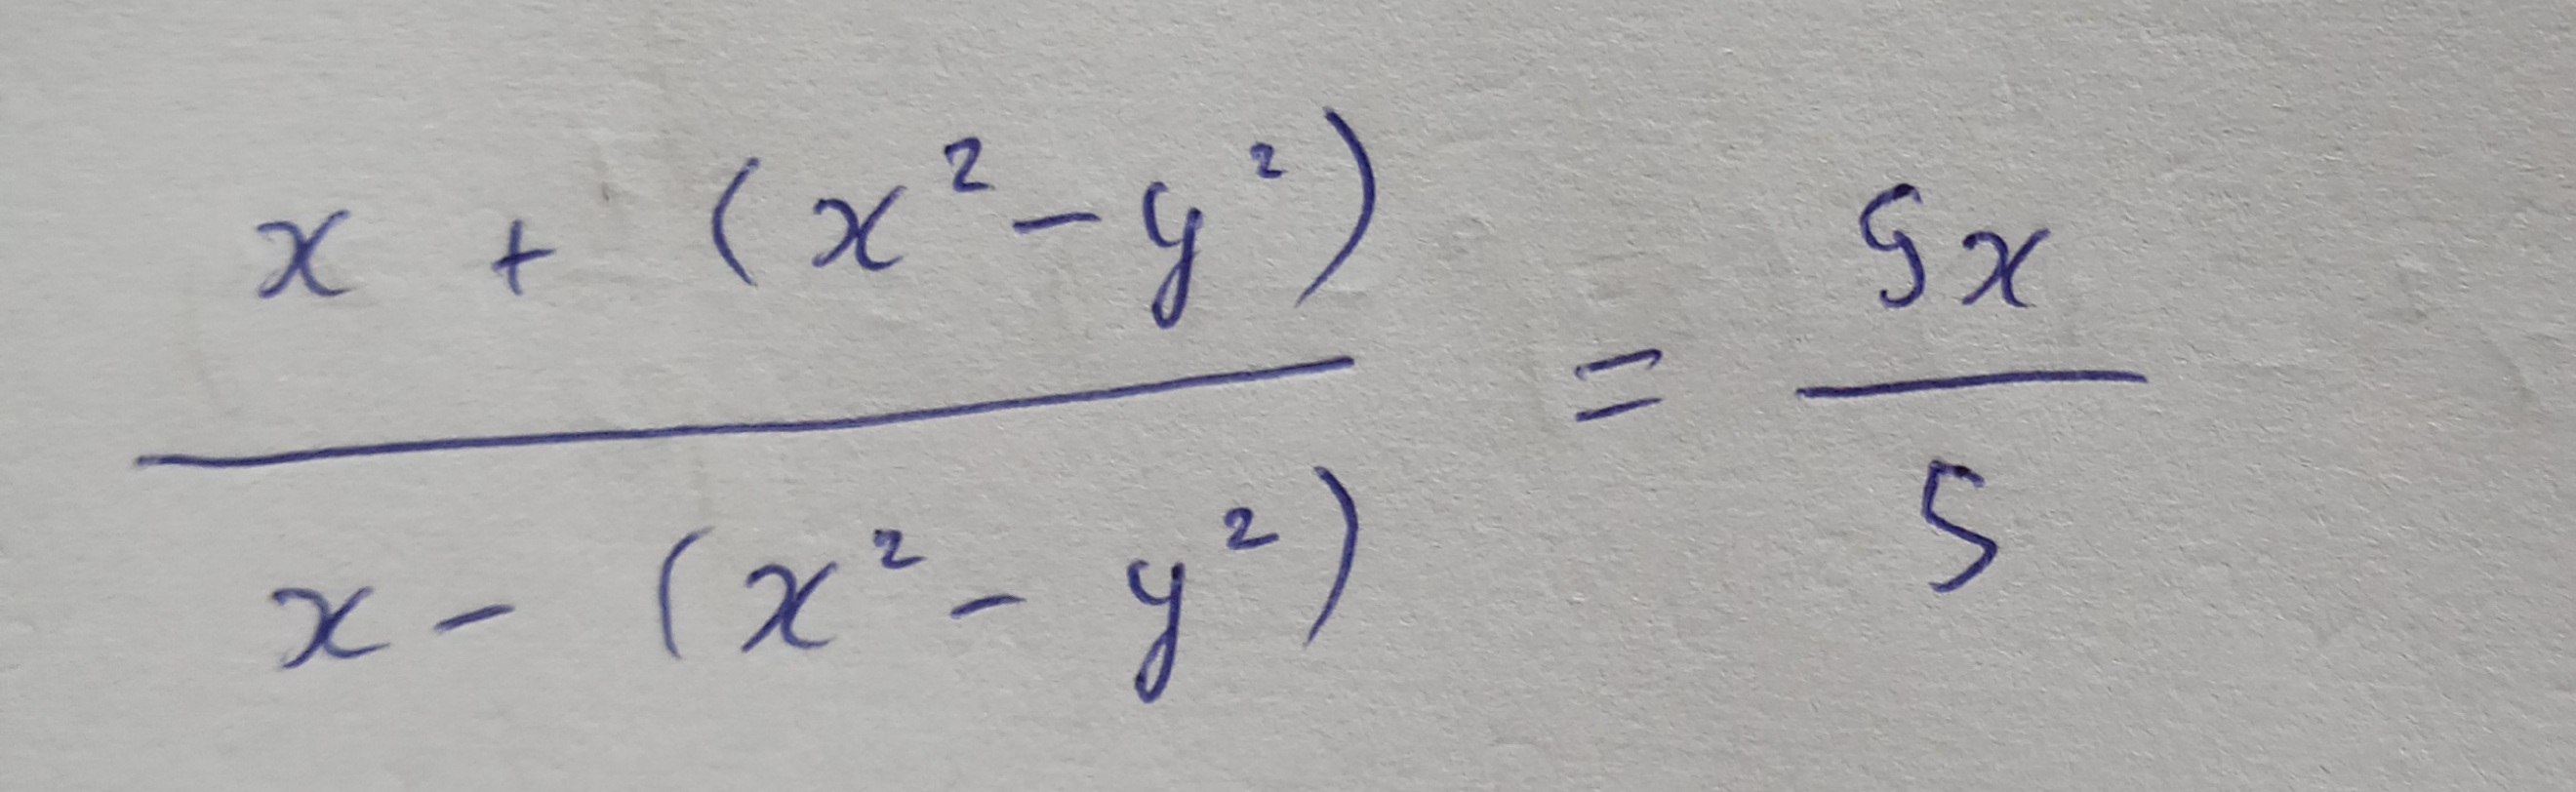 x + (x² - y²)
x - (x² - y²)
=
5x
5